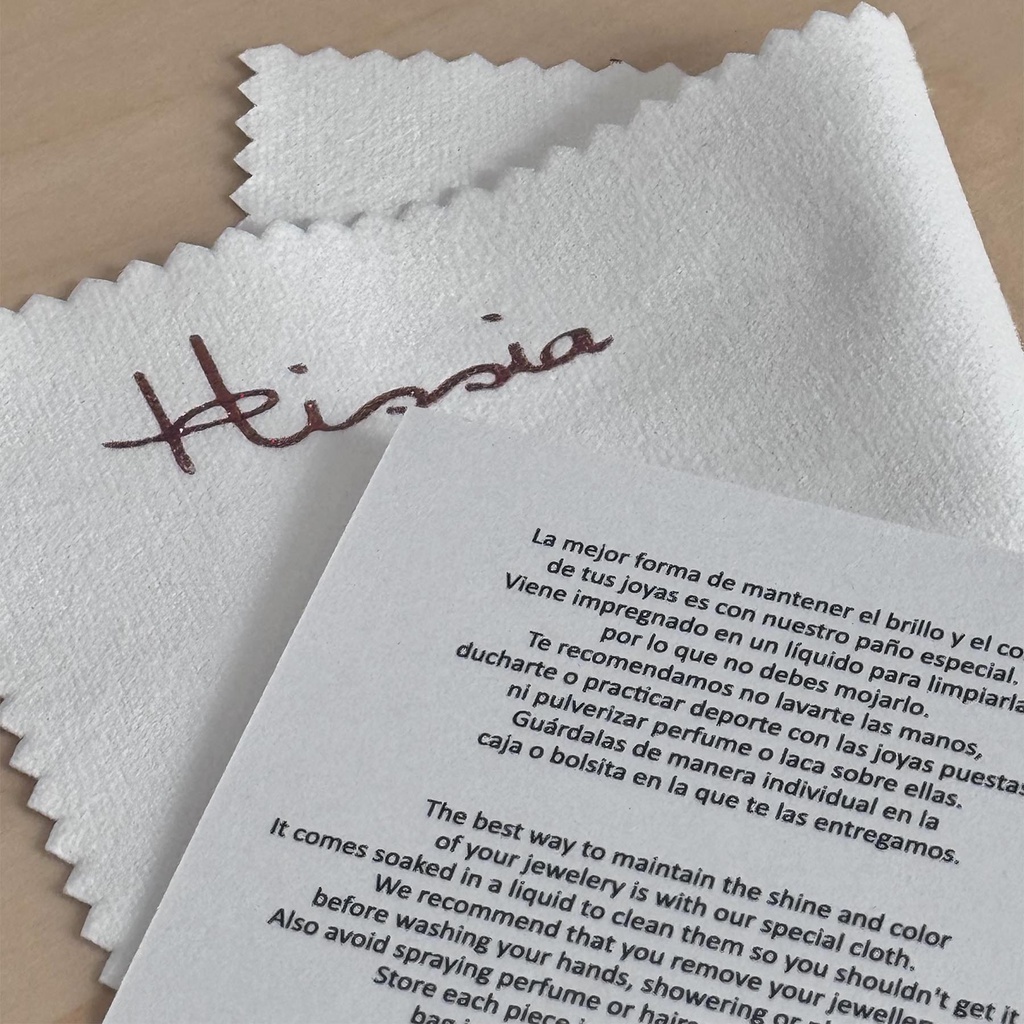 Hissia
La mejor forma de mantener el brillo y el co
de tus joyas es con nuestro paño especial.
Viene impregnado en un líquido para limpiarla
por lo que no debes mojarlo.
Te recomendamos no lavarte las manos,
ducharte o practicar deporte con las joyas puestas
ni pulverizar perfume o laca sobre ellas.
Guárdalas de manera individual en la
caja o bolsita en la que te las entregamos.
The best way to maintain the shine and color
of your jewelery is with our special cloth.
It comes soaked in a liquid to clean them so you shouldn't get it
We recommend that you remove your jewellery
before washing your hands, showering or
Also avoid spraying perfume or hairs
Store each piece
bag